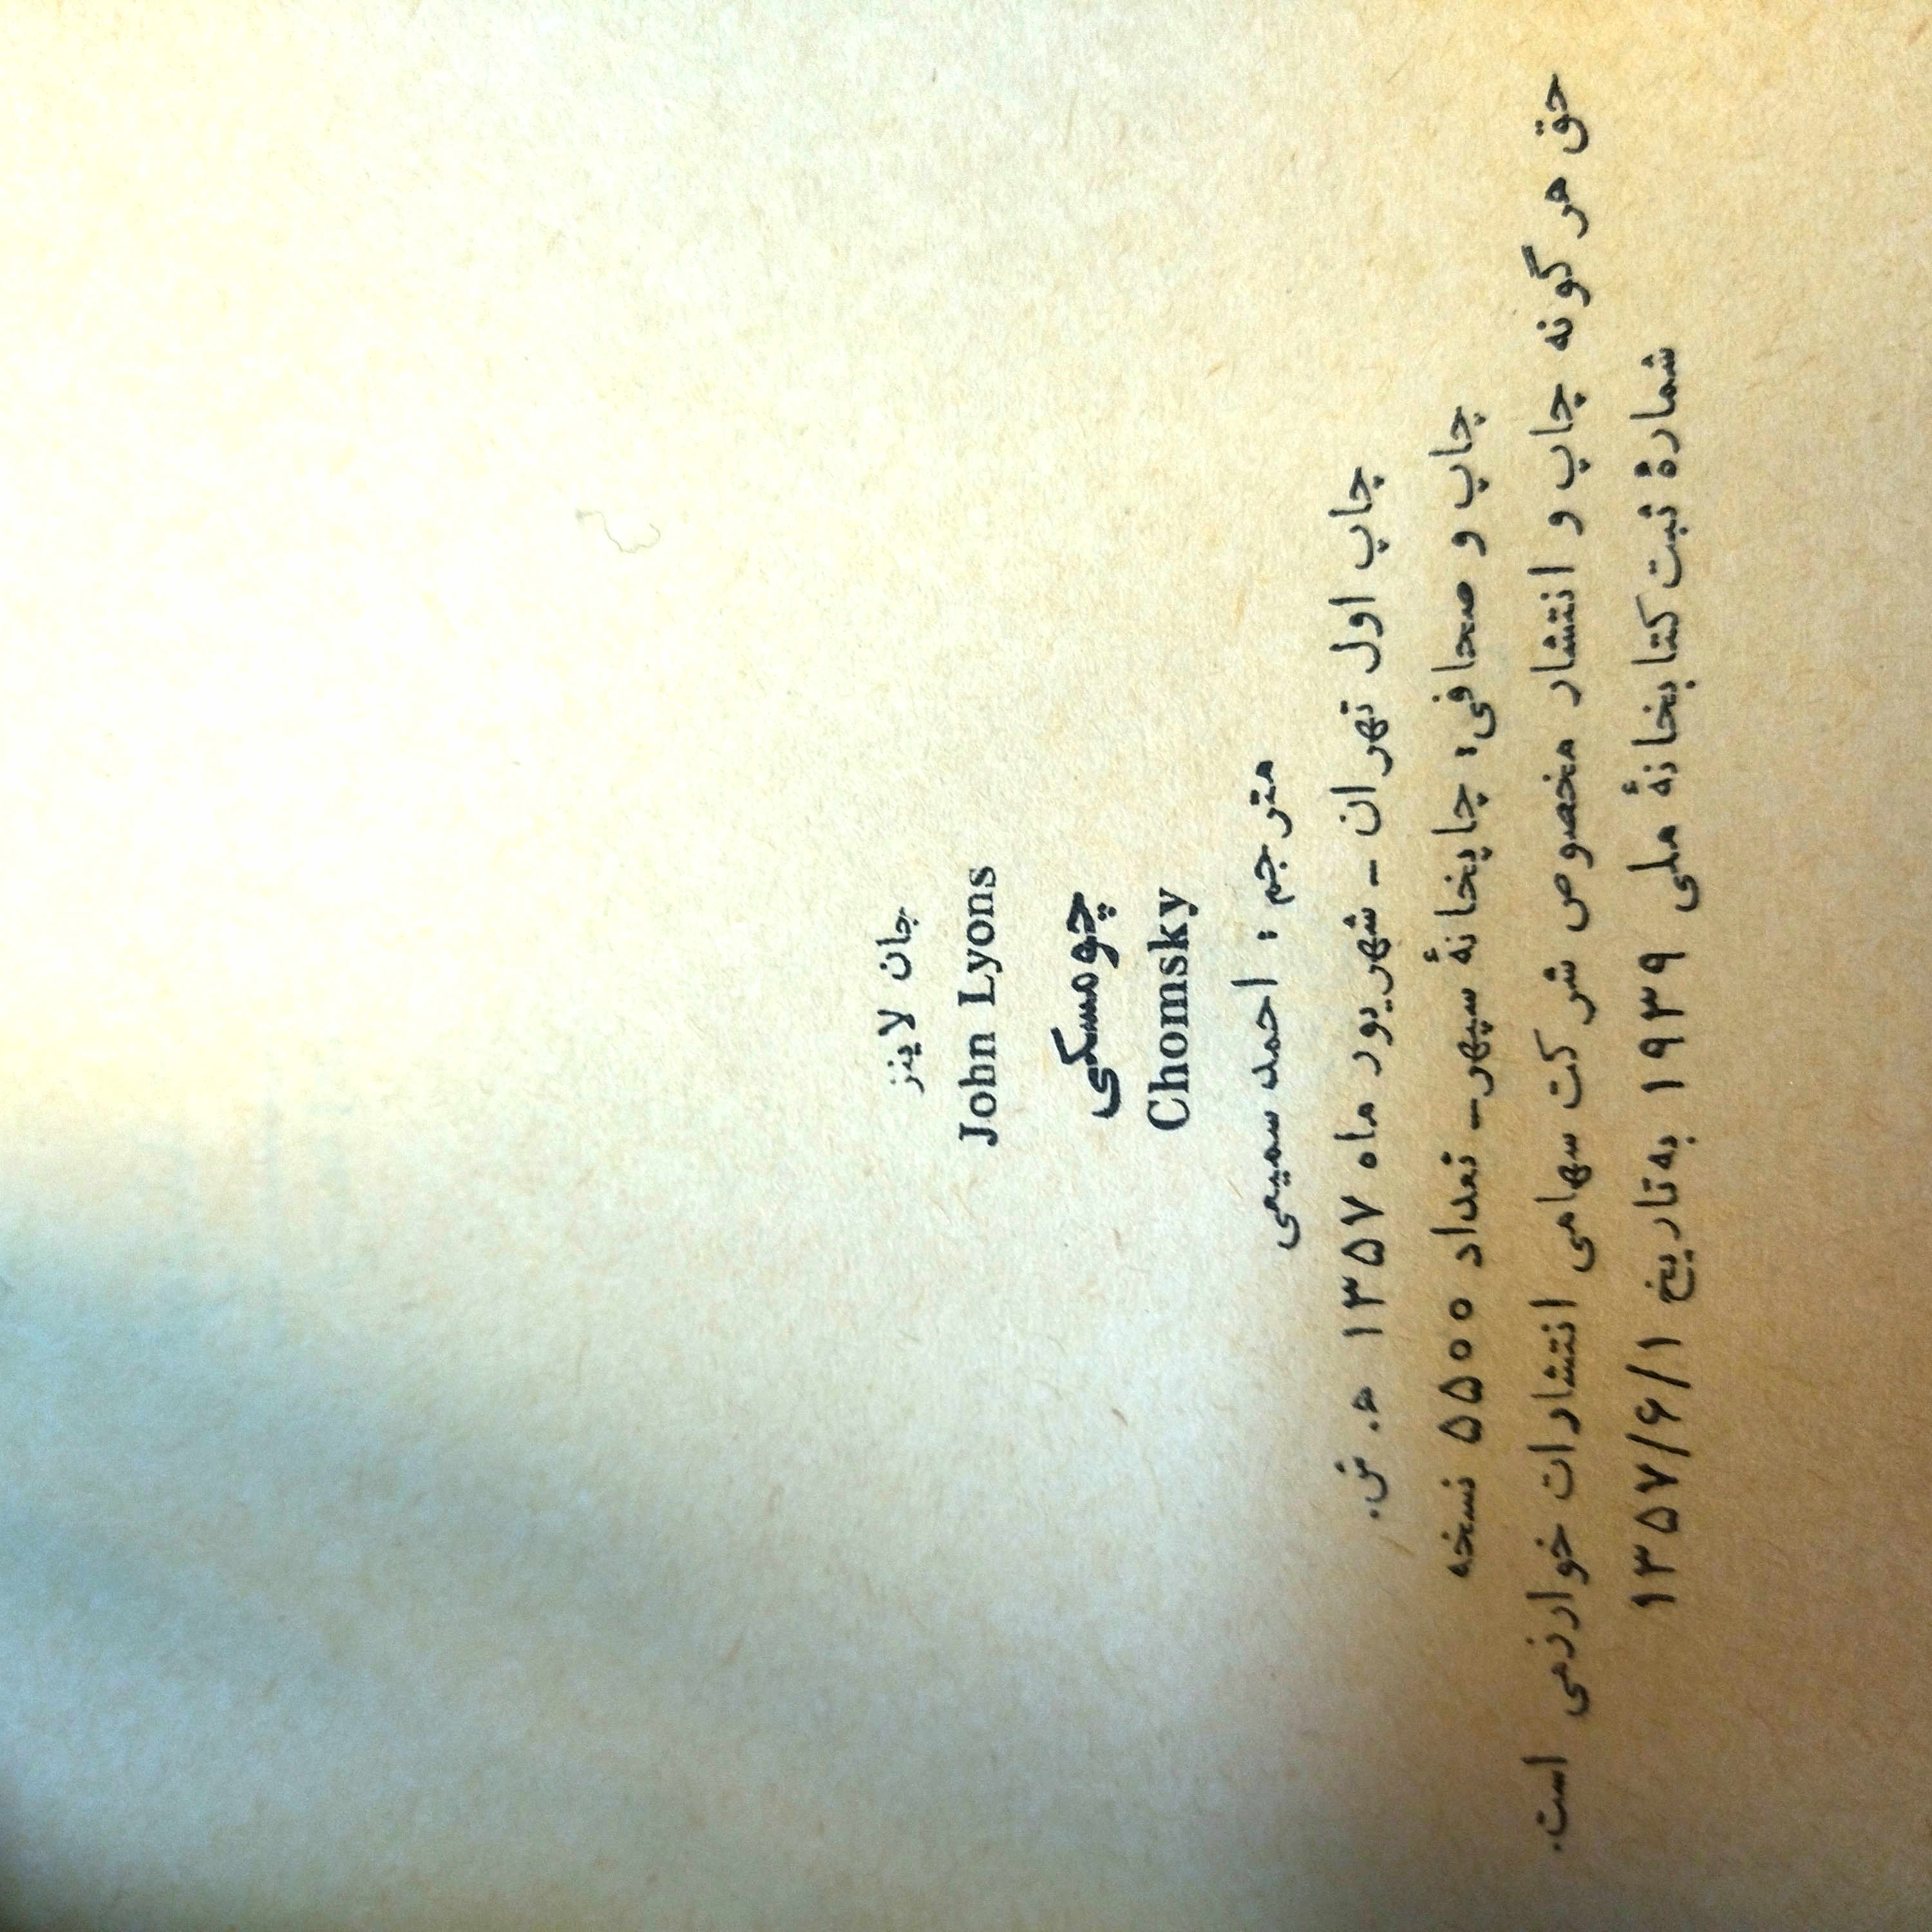 جان لاینز
John Lyons
چومسکی
Chomsky
مترجم : احمد سمیعی
چاپ اول تهران - شهریور ماه ۱۳۵۷ ه. ش.
چاپ و صحافی: چاپخانهٔ سپهر- تعداد ۵۵۰۰ نسخه
حق هر گونه چاپ و انتشار مخصوص شرکت سهامی انتشارات خوارزمی است.
شمارهٔ ثبت کتابخانهٔ ملی ۱۹۳۹ به تاریخ ۱۳۵۷/۶/۱